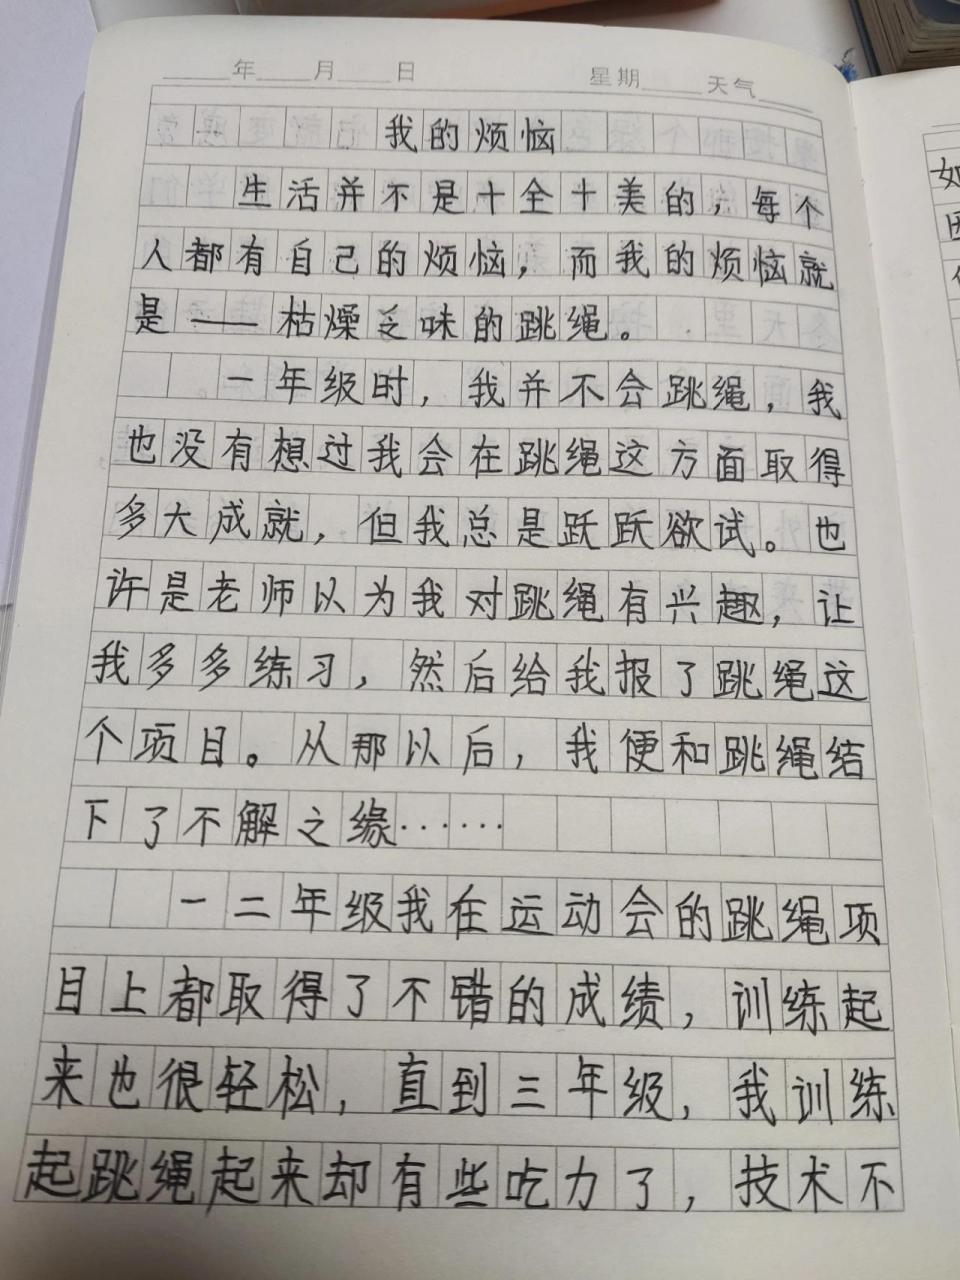 年 月 日 星期 天气
我的烦恼
生活并不是十全十美的，每个
人都有自己的烦恼，而我的烦恼就
是——枯燥乏味的跳绳。
一年级时，我并不会跳绳，我
也没有想过我会在跳绳这方面取得
多大成就，但我总是跃跃欲试。也
许是老师以为我对跳绳有兴趣，让
我多多练习，然后给我报了跳绳这
个项目。从那以后，我便和跳绳结
下了不解之缘……
一二年级我在运动会的跳绳项
目上都取得了不错的成绩，训练起
来也很轻松，直到三年级，我训练
起跳绳起来却有些吃力了，技术不
如